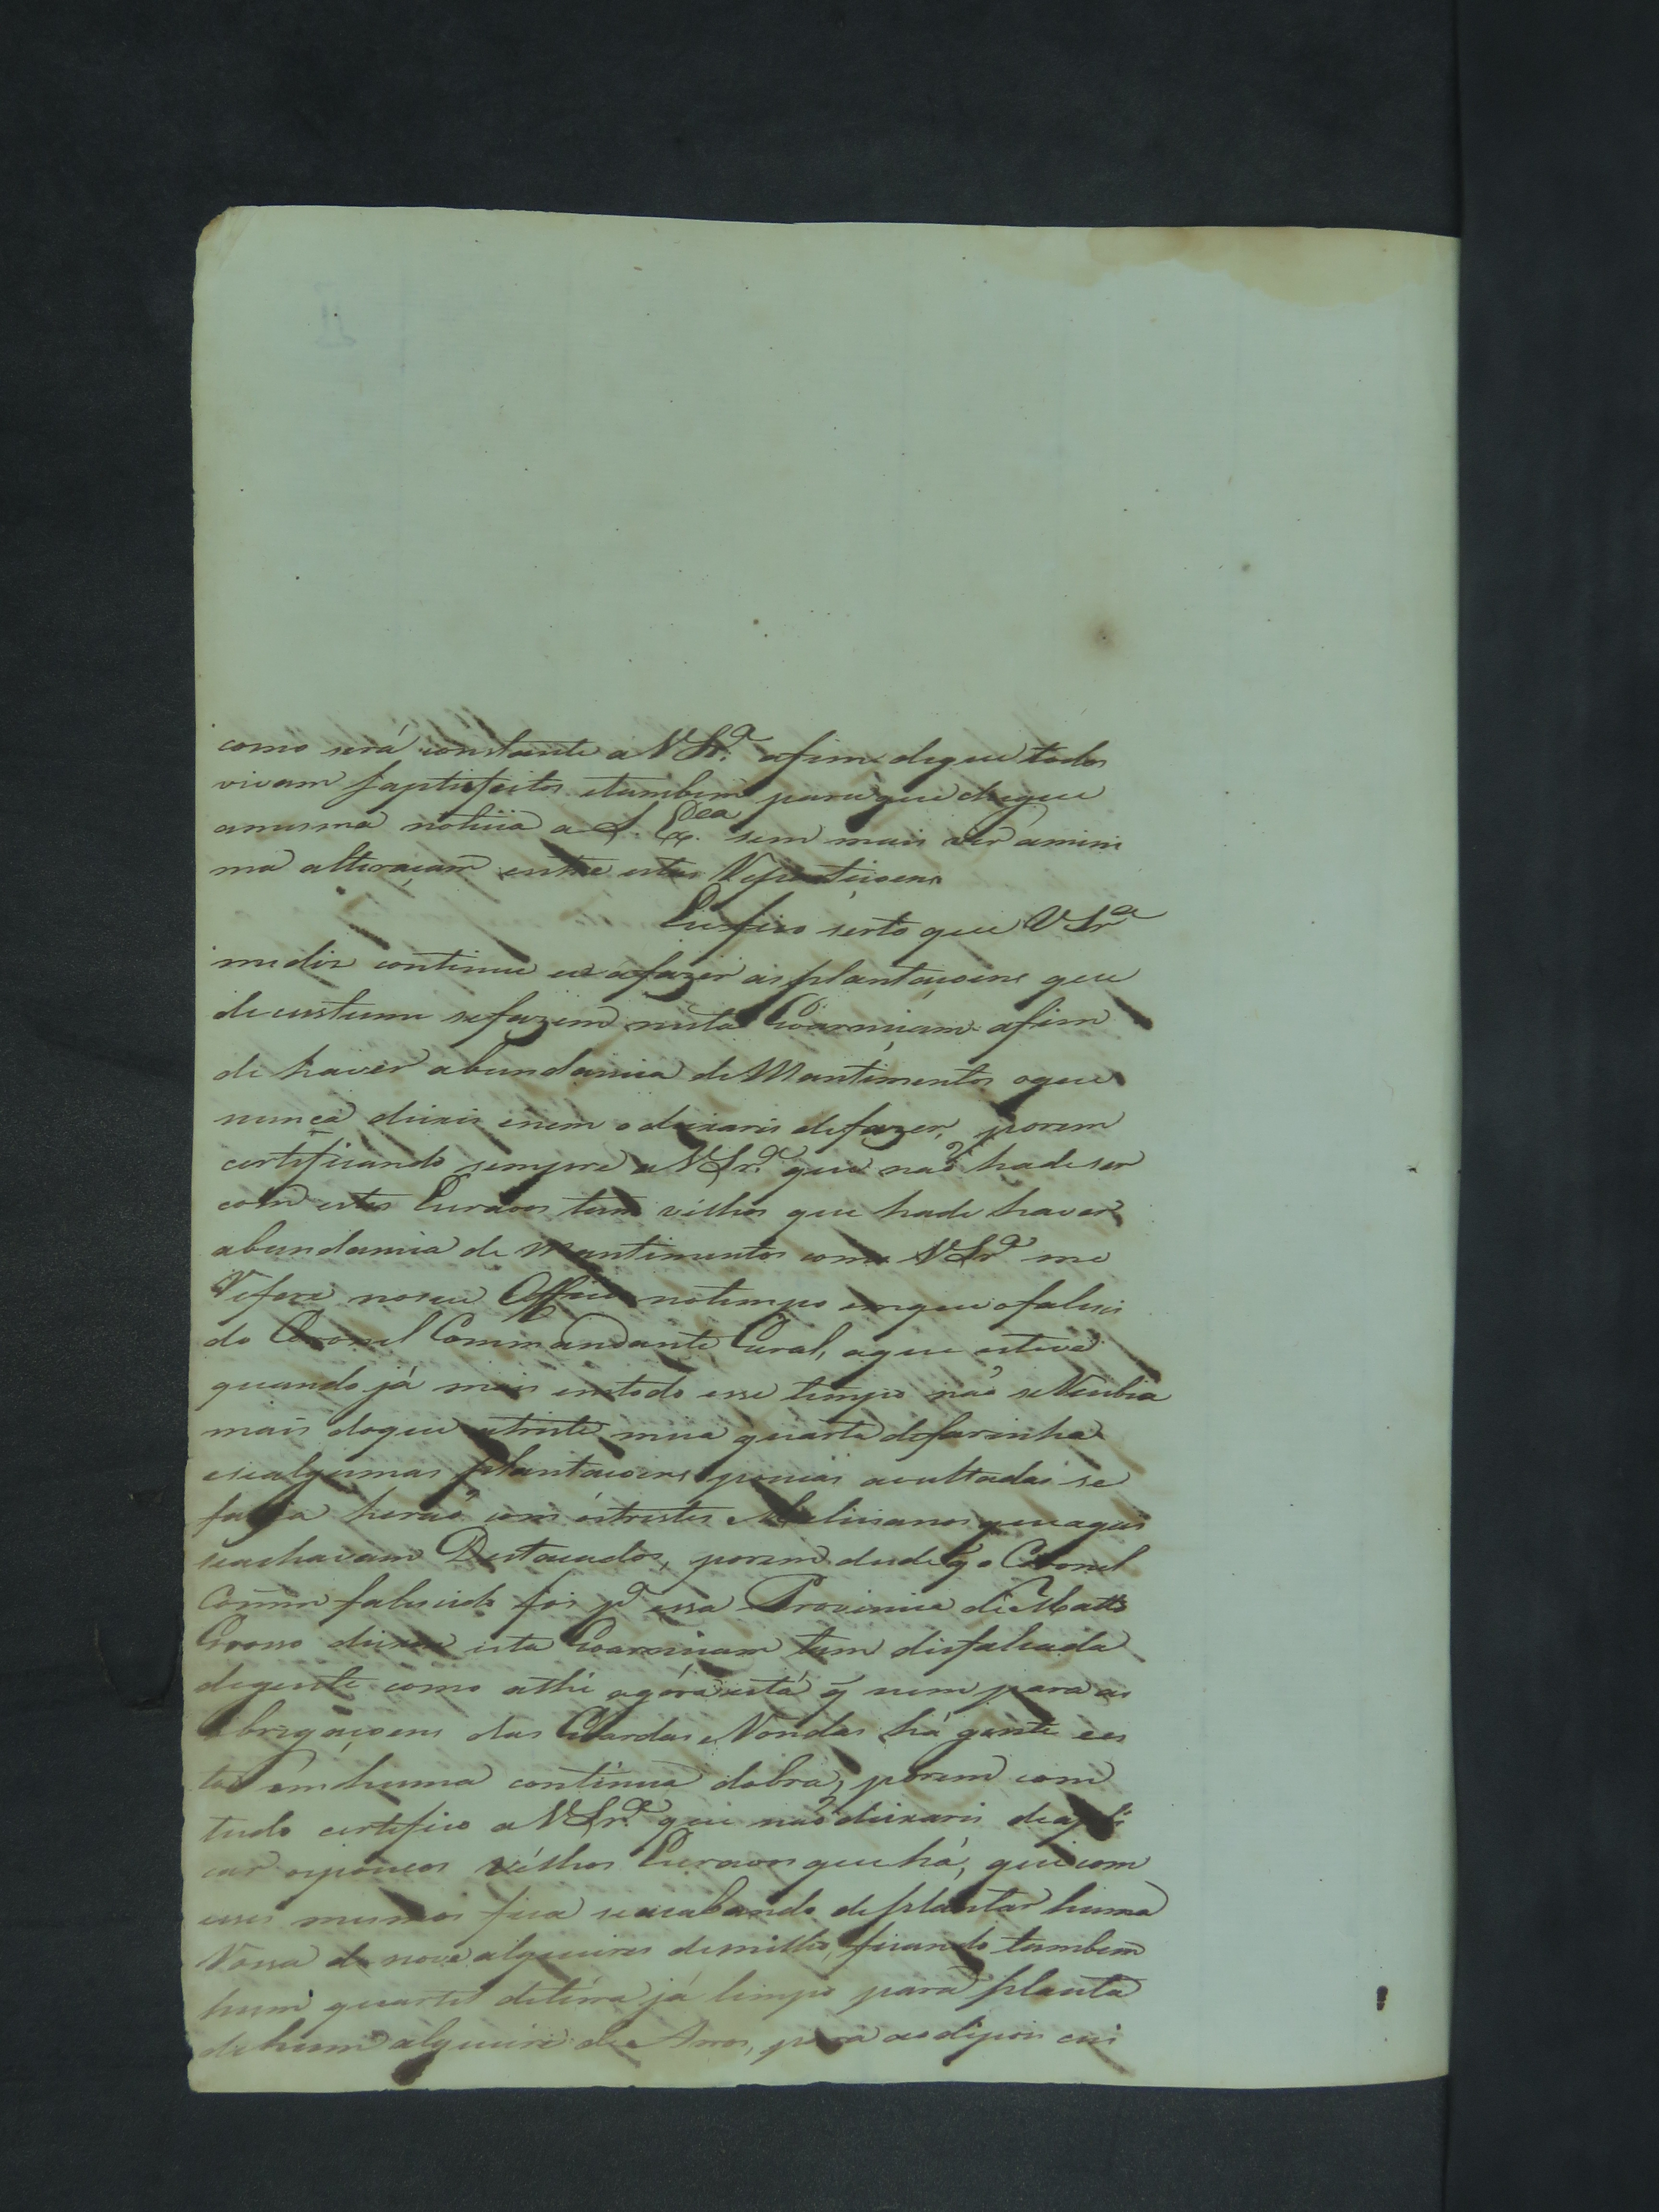 como será constante a VSr.ª afim deque todos
vivam saptisfeitos etambem para que chegue
amesma noticia a S. Ex.cea sem mais ver amini
ma alteraçam entre estas Repartiçoens
Eu fico serto que VSr.ª
me diz continue eu afazer as plantaçoens que
de custume sefazem nesta Goarniçam afim
de haver abundancia de Mantimentos oque
nunca deixei enem odeixarei defazer, porem
certeficando sempre a VSr.ª que naõ hade ser
com estes Escravos tam velhos que hade haver
abundancia de Mantimentos como VSr.ª me
Refere noseu Officio notempo emque ofaleci
do Coronel Commandante Geral, aque esteve
quando já mais emtodo esse tempo naõ seRecebia
mais doque atriste meia quarta defarinha
ese algumas plantaçoens poucas avultadas se
fazia heraõ com ostristes Meliciano queaqui
seachavam Destacados, porem desde q̃ o Coronel
Comm falecido foi pª essa Provincia de Matto
Grosso deixou esta Goarniçam tam disfalcada
degente como athé agora está q̃ nem para as
obrigaçoens das Goardas e Rondas há gente ees
taõ em huma continua dobra, porem com
tudo certefico a VSr.ª que naõ deixarei deapli
car ospoucos velhos Escravos que há, que com
esses mesmos fica seacabando deplantar huma
Rossa de nove alqueires demilho, ficando tambem
hum quartel deterra já limpo para planta
dehum alqueire de Arros, para aodipois cui